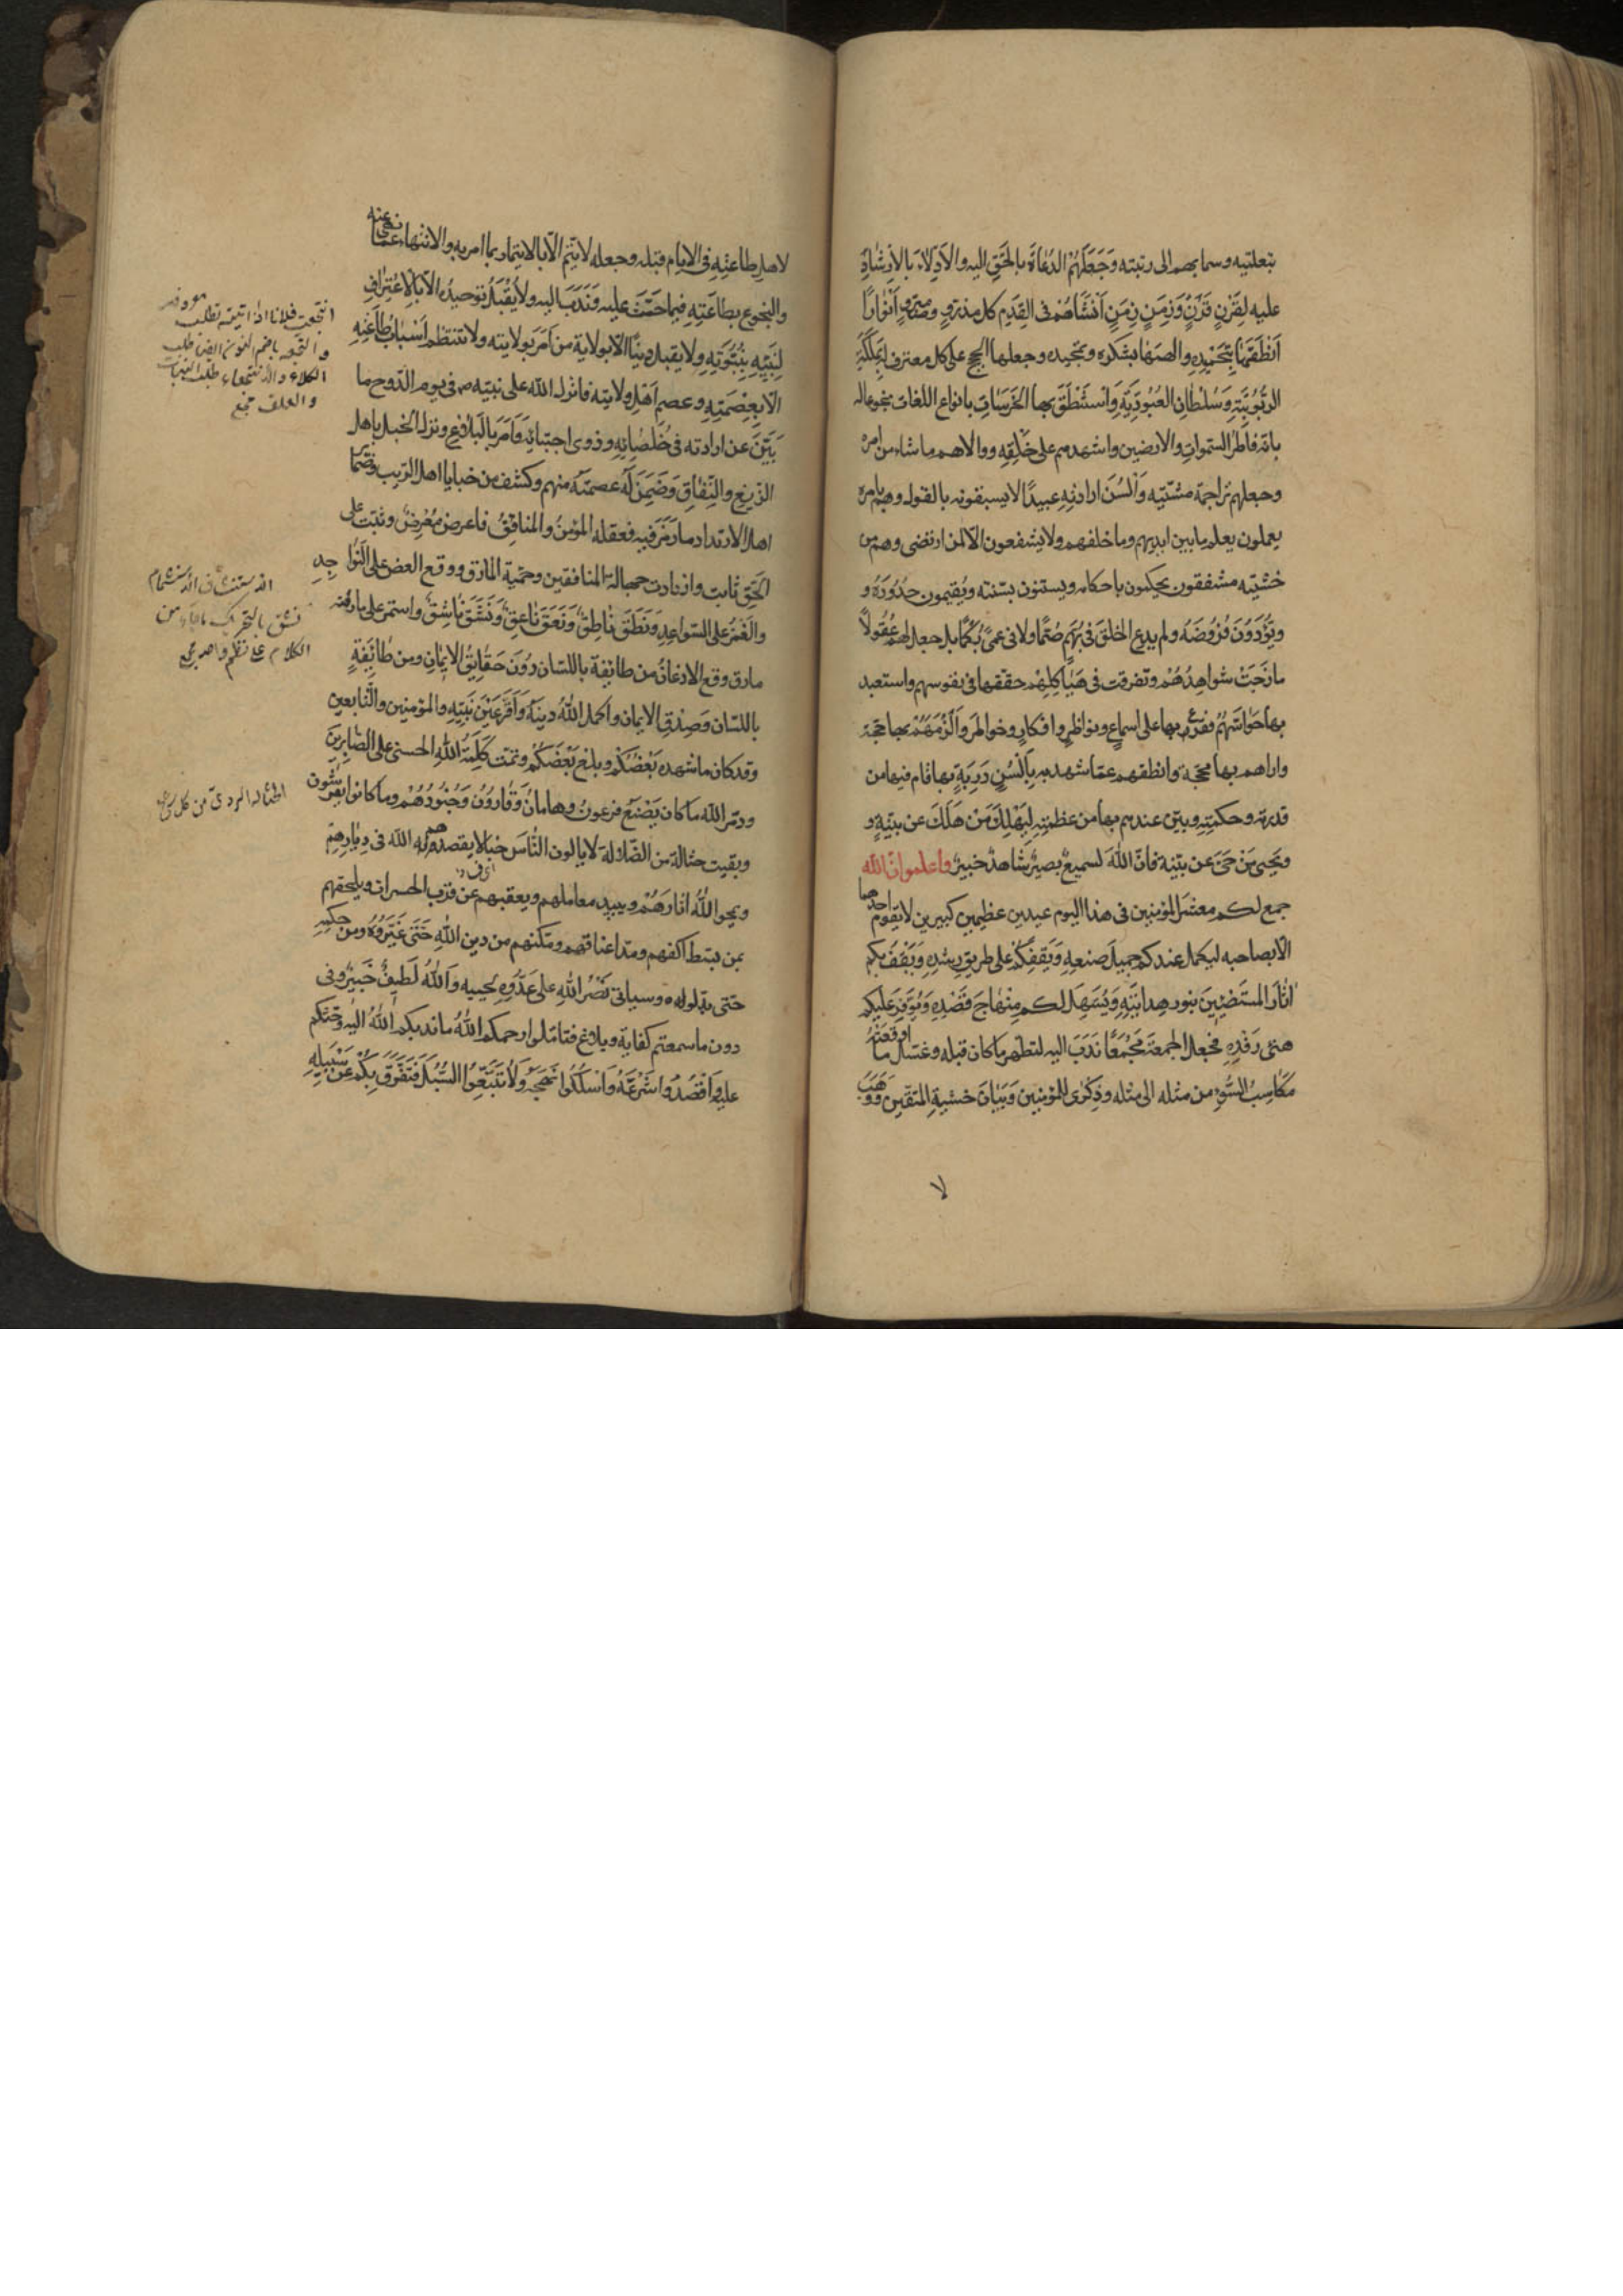 بتعليته وسما بهم الى رتبته وَجَعَلَهُمُ الدُعاةَ بالحَقِّ اليه والاَدِلّاءَ بالاِرشادِ
عليه لِقَرْنٍ قَرْنٍ وَزَمَنٍ زَمَنٍ اَنْشَأَهُمْ فى القِدَمِ كل مذروٍ ومبروٍ اَنْوارًا
اَنْطَقَهٰا بِتَحْمِيْدِهِ والهمها بشكره وتمجيده وجعلها الحجج على كل معترف لِمَلَكَةِ
الرّبُوبيَّةِ وَسُلْطٰانِ العُبُودِيَّةِ وَاسْتَنْطَقَ بها الخَرَسَاتِ بانواع اللّغات بخوعا له
بانّه فاطِرُ السّمواتِ والارضين واشهدهم على خَلْقِهِ وولاهم ما شاء من امره
وجعلهم تراجمة مشيّتِهِ وَاَلْسُنَ ارادتِهِ عبيدًا لا يسبقونه بالقول وهم بامره
يعملون يعلم ما بين ايديهم وما خلفهم ولا يشفعون الّا لمن ارتضى وهم من
خَشْيَتِه مشفقون يحكمون باحكامه ويستنون بسُنّته ويُقيمون حدُودَهُ و
ويُؤَدّوُنَ فُرُوضَهُ ولم يدع الخلقَ فى بُهَمٍ صُمًّا ولا فى عمىً بُكْمًا بل جعل لهم عُقُولًا
مازَجَتْ شواهِدُهُمْ وتفرقت فى هَيٰاكِلِهِمْ حققها فى نفوسهم واستعبد
بها حَوٰاسّهُمْ فقرّر بها على اسماعٍ ونواظِرٍ وافكارٍ وخواطِرَ وَاَلْزَمَهُمْ بها حجّته
واراهم بها محجّته وانطقهم عمّا شهد به بِاَلْسُنٍ ذَرِبَةٍ بها قام فيها من
قدرته وحكمته وبيّن عندهم بها من عظمته لِيَهْلِكَ مَنْ هَلَكَ عن بيّنةٍ و
ويَحْيٰى مَنْ حَىَّ عن بيّنة فانّ اللّٰهَ لسميعٌ بصيرٌ شاهدٌ خبيرٌ واعلموا انّ اللّٰه
جمع لكم معشر المؤمنين فى هذا اليوم عيدين عظيمين كبيرين لا يقوم احدهما
الّا بصاحبه ليكمل عندكم جميلَ صنعِهِ وَيَقِفَكُمْ على طريقِ رشدِهِ وَيَقْفُ بكم
آثٰارَ المستضيئينَ بنور هدايَتِهِ وَيُسَهِّلَ لكم مِنْهاجَ قَصْدِهِ وَيُوَفِّرَ عليكم
هنئَ رَفْدِهِ فجعل الجمعةَ مَجْمَعًا نَدَبَ اليه لتطهير ما كان قبله وغَسْلِ ما اَوْقَعَتْهُ
مَكَاسِبُ السُّوْءِ من مثله الى مثله وذِكْرٰى للمؤمنين وَبَيٰانَ خشيةِ المتقين وَوَهَبَ
لا
لاهل طاعتِهِ فى الايام قبله وجعله لا يَتُمّ الّا بالايتمار بما امر به والانتهاء عمّا نهى عنه
والبخوع بطاعَتِهِ فيما حَثَّ عليه وَنَدَبَ اليه ولا يُقْبَلُ توحيدُه الّا بالاعْتِرافِ
لِنَبِيِّهِ بِنُبُوَّتِهِ ولا يقبل دينًا الّا بولاية من اَمَرَ بولايته ولا تنتظم اَسْبابُ طاعَتِهِ
الّا بِعِصْمَتِهِ وعصم اَهْلِ ولايته فانزل اللّٰه على نبيّه ص فى يوم الدّوح ما
بَيَّنَ عن ارادته فى خُلَصٰائِهِ وذوى اجتبائه وَاَمَرَ بالبَلاغ ونزل الخبل باهل
الزّيغِ والنِّفاقِ وَضَمِنَ له عصمته منهم وكشف من خبايا اهل الرّيب وضما
اهل الارتداد ما رَمَزَ فيه فعقله المؤمنُ والمنافِقُ فاعرض مُعْرِضٌ وثبت على
الحَقِّ ثابت وازدادت جهالة المنافقين وحميّة المارق ووقع العضّ على النّواجِذِ
والغَمْزُ على السّواعِدِ وَنَطَقَ ناطِقٌ وَنَعَقَ نٰاعِقٌ وَنَشَقَ نٰاشِقٌ واستمر على مارقته
مارق ووقع الاذعانُ من طائِفة باللسّان دُوْنَ حَقٰايِقِ الايمٰانِ ومن طائِفَةٍ
باللسّان وَصِدْقِ الايمان واكمل اللّٰهُ دينَهُ وَاَقَرَّ عَيْنَ نَبِيِّهِ والمؤمنين والتّابعين
وقد كان ما شهده بَعْضُكُمْ وبلغ بَعْضَكُمْ وتمّت كَلِمَةُ اللّٰهِ الحسنى على الصّابِرِينَ
ودمّر اللّٰه ما كان يَصْنَعُ فرعونُ وهامانُ وَقٰارُوْنُ وَجُنُودُهُمْ وما كانوا يعرشون
وبقيت حثالة من الضّلّال لا يالون النّاسَ خَبٰالًا يقصدهم اللّٰه فى دِيٰارِهِمْ
ويمحو اللّٰهُ آثارَهُمْ ويبيد معاملهم ويعقبهم عن قربٍ الحسرات ويلحقهم
بمن بسط اكفهم ومدّ اعناقهم ومكّنهم من دين اللّٰهِ حَتّى غَيَّرُوهُ ومن حكمِهِ
حتّى بدّلوله وسياتى نَصْرُ اللّٰهِ على عَدُوِّهِ لحينِهِ وَاللّٰهُ لَطيفٌ خَبيرٌ وفى
دون ما سمعتم كفاية وبلاغ فتامّلوا رحمكم اللّٰهُ ما ندبكم اللّٰهُ اليه وحثّكم
عليه وَاقْصُدُوا شَرْعَهُ وَاسْلُكُوا نَهْجَهُ وَلا تَتَّبِعُوا السُّبُلَ فَتَفَرَّقَ بِكُمْ عَنْ سَبيلِهِ
انتجعت فلانا اذا اتيته تطلب معروفه
و النجعه بالضم النون ايضا طلب
الكلاء والانتجاع طلب النبات
والعلف مجمع
الاستنشاق الاستشمام
نسق بالتحريك ما جاء من
الكلام على نظم واحد مجمع
الحثاله الردىّ من كل شئ